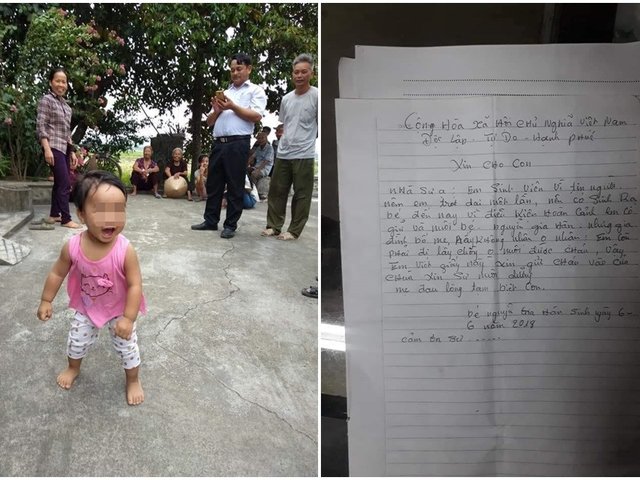 Cộng Hòa Xã Hội Chủ Nghĩa Việt Nam
Độc Lập - Tự Do - Hạnh Phúc
Xin Cho Con
Nhà Sư ạ: Em Sinh Viên vì tin người
nên em trót dại một lần, nên có Sinh Ra
bé, đến nay vì điều Kiện Hoàn Cảnh Em có
gửi và nuôi bé nguyễn gia Hân. Nhưng gia
đình bố mẹ, Hay không nhận nhau. Em còn
phải đi lấy chồng nuôi được cháu. Vậy
Em viết giấy này xin gửi cháu vào cửa
chùa xin Sư nuôi dưỡng
mẹ đau lòng tạm biệt Con.
bé nguyễn gia Hân Sinh ngày 6-
6 năm 2018
cảm ơn sư ......